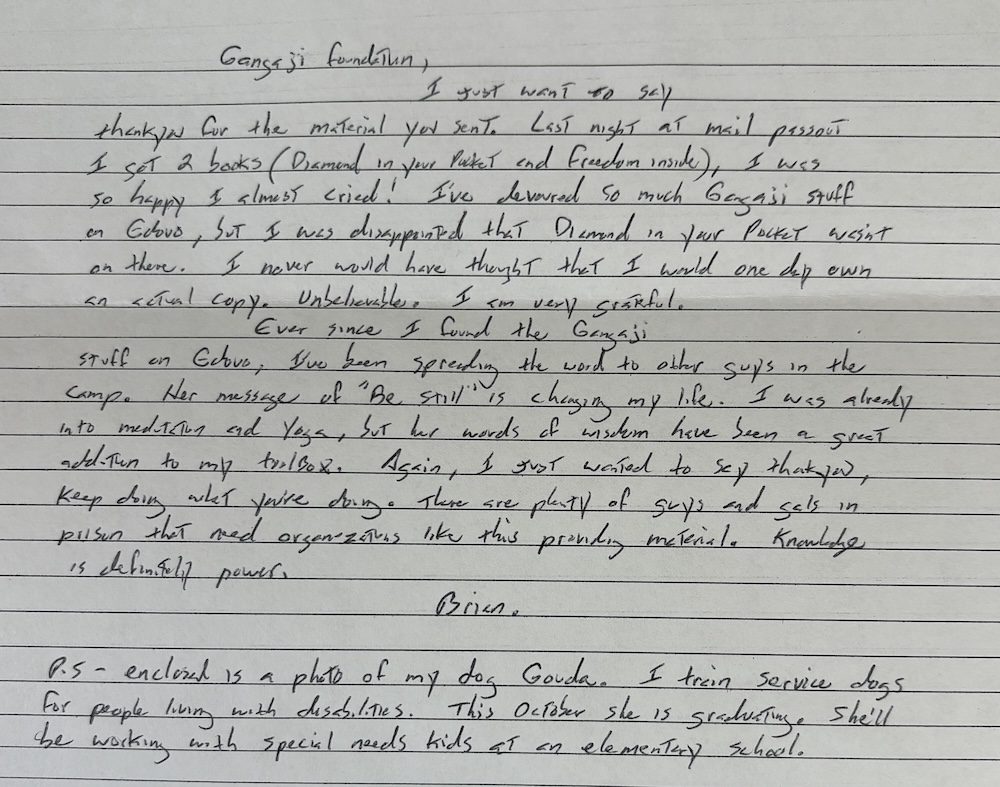 Gangaji Foundation,
I just want to say
thankyou for the material you sent. Last night at mail passout
I got 2 books (Diamond in your Pocket and Freedom inside), I was
so happy I almost cried! I've devoured so much Gangaji stuff
on Edovo, but I was disappointed that Diamond in your Pocket wasn't
on there. I never would have thought that I would one day own
an actual copy. Unbelievable. I am very grateful.
Ever since I found the Gangaji
stuff on Edovo, I've been spreading the word to other guys in the
camp. Her message of "Be still" is changing my life. I was already
into meditation and Yoga, but her words of wisdom have been a great
addition to my toolBox. Again, I just wanted to say thankyou,
Keep doing what you're doing. There are plenty of guys and gals in
prison that need organezations like this providing material. Knowledge
is definitely power.
Brian.
P.S - enclosed is a photo of my dog Gouda. I train service dogs
for people living with disabilities. This October she is graduating. She'll
be working with special needs kids at an elementary school.